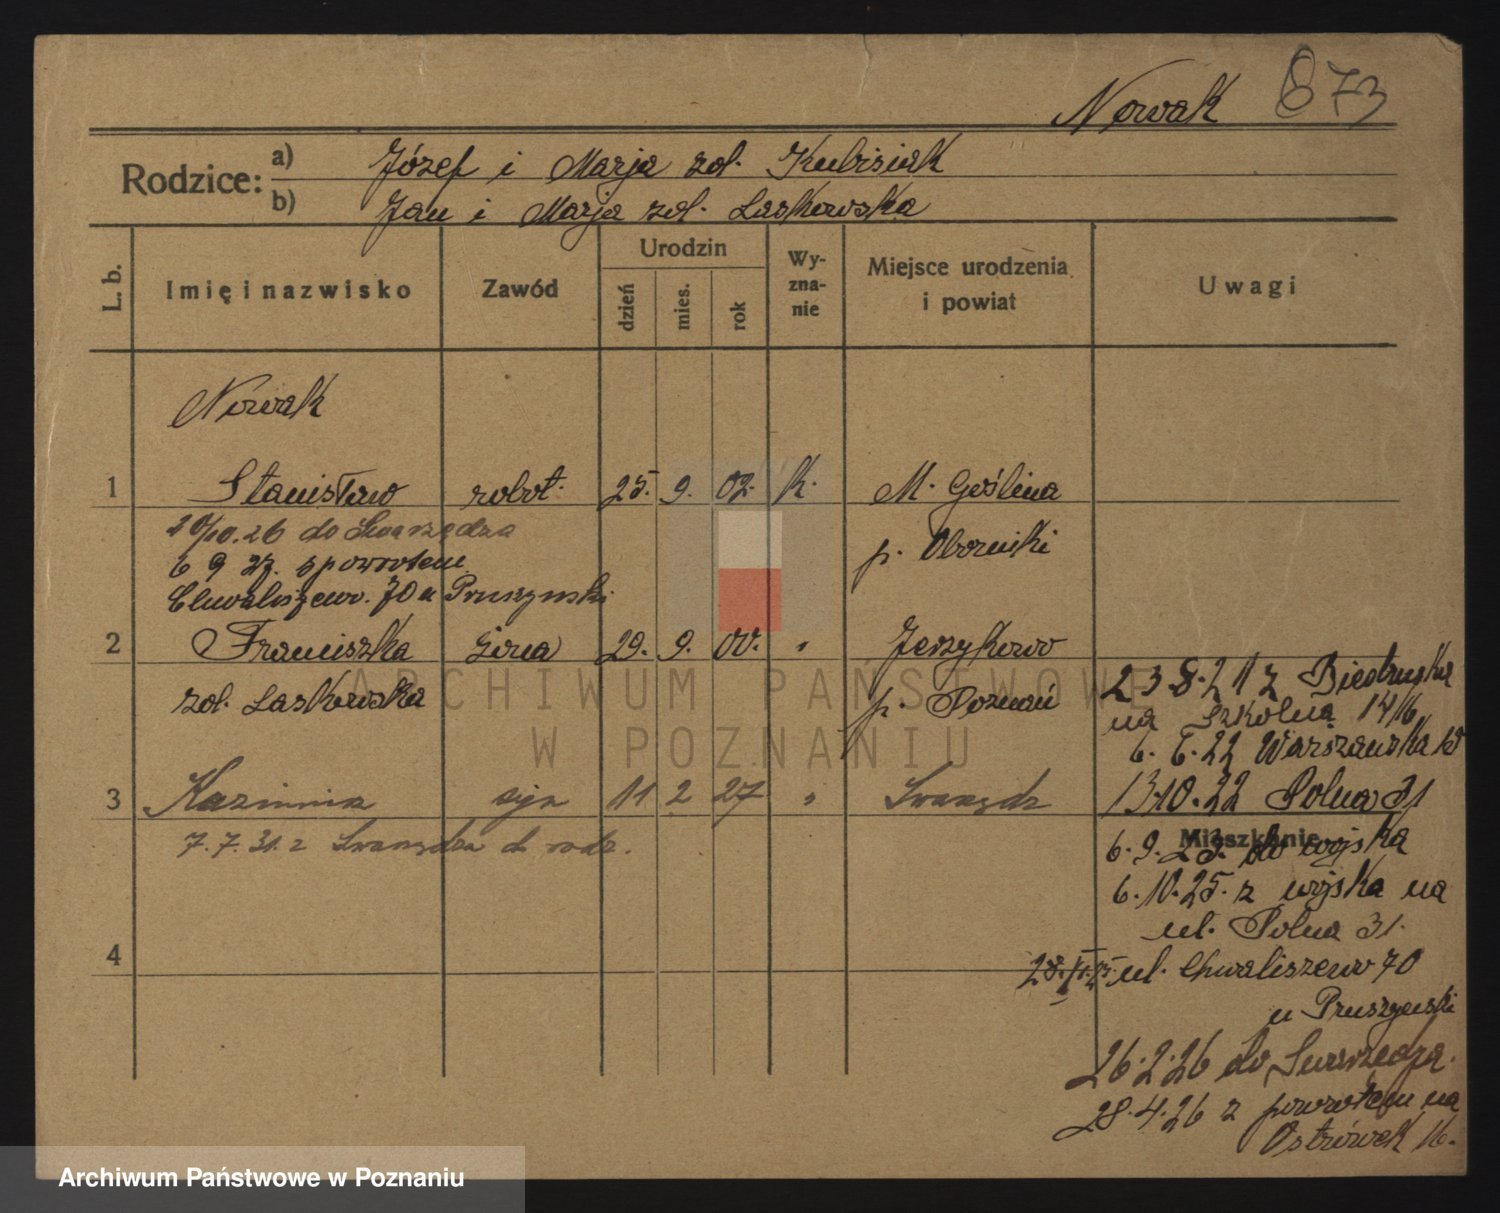 Nowak 873
Rodzice:
a) Józef i Marja zd. Kubisiak
b) Jan i Marja zd. Laskowska
L. b.
Imię i nazwisko
Zawód
Urodzin
dzień
mies.
rok
Wy-
zna-
nie
Miejsce urodzenia
i powiat
Uwagi
Nowak
1 Stanisław robot. 25. 9. 02. k. M. Goślina
20/10.26 do Swarzędza
p. Oborniki
6 9 27. spowrotem
Chwaliszewo. 70 u Pruszynski
2 Franciszka żona 29. 9. 00. " Jerzykowo
zd. Laskowska p. Poznań
23.8.21 z Biedruska
na Szkolną 14/16
6. 6.22 Warszawska
3 Kazimierz syn 11 2 27 " Swarzędz
13.10.22 Polna 31
7.7.31. z Swarzędza do rodz.
Mieszkanie
6.9.23. do wojska
6.10.25. z wojska na
ul. Polna 31.
4
ul. Chwaliszewo 70
u Pruszynski
26.2.26 do Swarzędza.
28.4.26 z powrotem na
Ostrówek 16.
ARCHIWUM PAŃSTWOWE
W POZNANIU
Archiwum Państwowe w Poznaniu